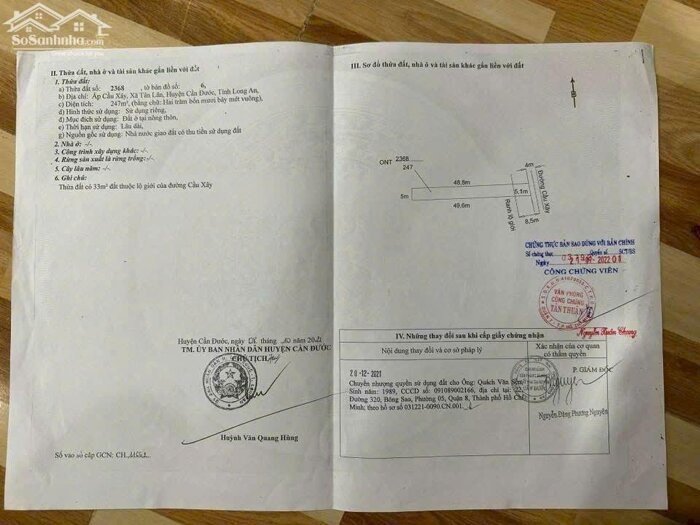 SoSanhnha.com
II. Thửa đất, nhà ở và tài sản khác gắn liền với đất
1. Thửa đất:
a) Thửa đất số: 2368, tờ bản đồ số: 6,
b) Địa chỉ: Ấp Cầu Xây, Xã Tân Lân, Huyện Cần Đước, Tỉnh Long An,
c) Diện tích: 247m², (bằng chữ: Hai trăm bốn mươi bảy mét vuông),
d) Hình thức sử dụng: Sử dụng riêng,
đ) Mục đích sử dụng: Đất ở tại nông thôn,
e) Thời hạn sử dụng: Lâu dài,
g) Nguồn gốc sử dụng: Nhà nước giao đất có thu tiền sử dụng đất
2. Nhà ở: -/-
3. Công trình xây dựng khác: -/-
4. Rừng sản xuất là rừng trồng: -/-
5. Cây lâu năm: -/-
6. Ghi chú:
Thửa đất có 33m² đất thuộc lộ giới của đường Cầu Xây
Huyện Cần Đước, ngày tháng 10 năm 2021
TM. ỦY BAN NHÂN DÂN HUYỆN CẦN ĐƯỚC
CHỦ TỊCH
Huỳnh Văn Quang Hùng
Số vào sổ cấp GCN: CH
III. Sơ đồ thửa đất, nhà ở và tài sản khác gắn liền với đất
B
ONT 2368
247
4m
48,5m
5m
5,1m
49,6m
8,5m
Ranh lộ giới
Đường Cầu Xây
CHỨNG THỰC BẢN SAO ĐÚNG VỚI BẢN CHÍNH
Số chứng thực Quyển số SCT/BS
Ngày
CÔNG CHỨNG VIÊN
VĂN PHÒNG
CÔNG CHỨNG
TÂN THUẬN
Nguyễn Xuân Chung
IV. Những thay đổi sau khi cấp giấy chứng nhận
Nội dung thay đổi và cơ sở pháp lý
Xác nhận của cơ quan
có thẩm quyền
28-12-2021
Chuyển nhượng quyền sử dụng đất cho Ông: Quách Văn
Sinh năm: 1989, CCCD số: 091089002166, địa chỉ tại: 22,
Đường 320, Bông Sao, Phường 05, Quận 8, Thành phố Hồ Chí
Minh; theo hồ sơ số 031221-0090.CN.001
P. GIÁM ĐỐC
Nguyễn Đặng Phương Nguyên